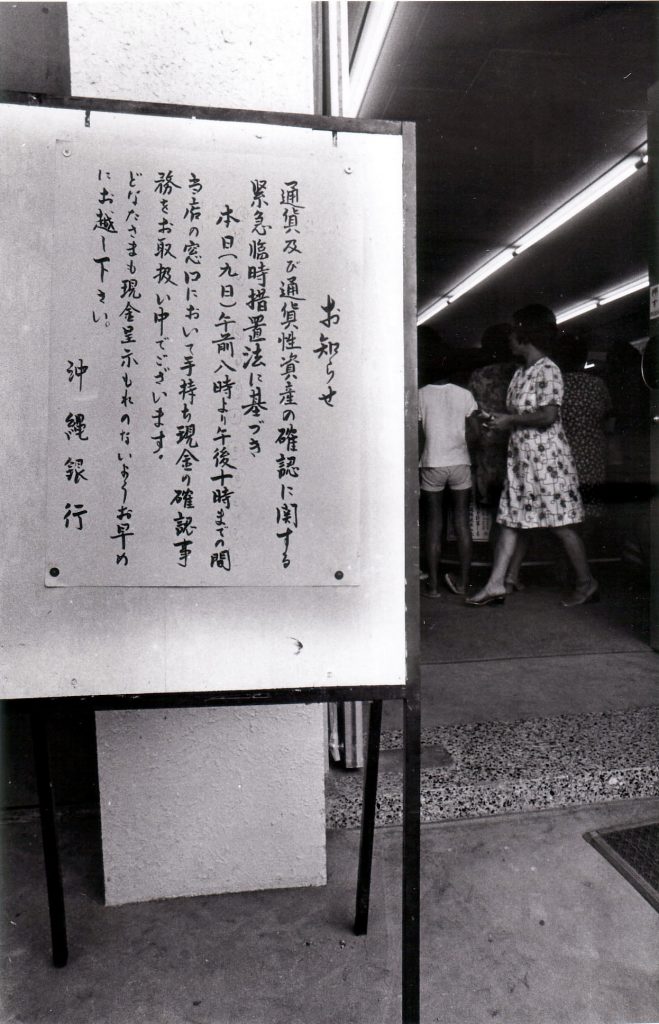 お知らせ
通貨及び通貨性資産の確認に関する
緊急臨時措置法に基づき
本日(九日)午前八時より午後十時までの間
当店の窓口において手持ち現金の確認事
務をお取扱い中でございます。
どなたさまも現金呈示もれのないようお早め
にお越し下さい。
沖縄銀行